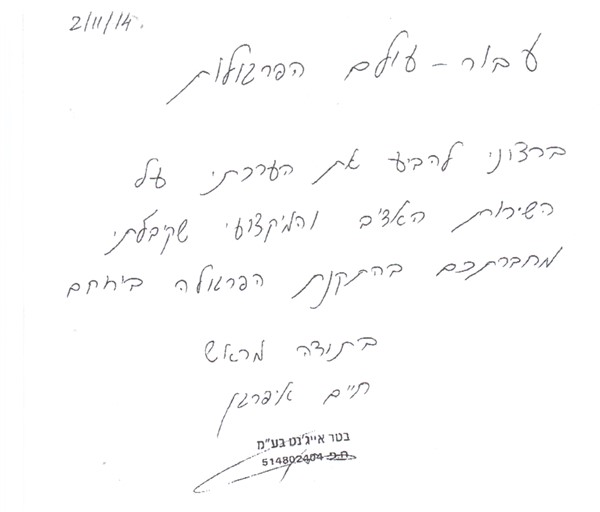 2/11/14.
עבור - עולם הפרגולות
ברצוני להביע את הערכתי על
השירות האדיב והמקצועי שקיבלתי
מחברתכם בהתקנת הפרגולה ביתחם
בתודה מראש
חיים איפרגן
בטר אייג'נט בע"מ
ח.פ. 514802404